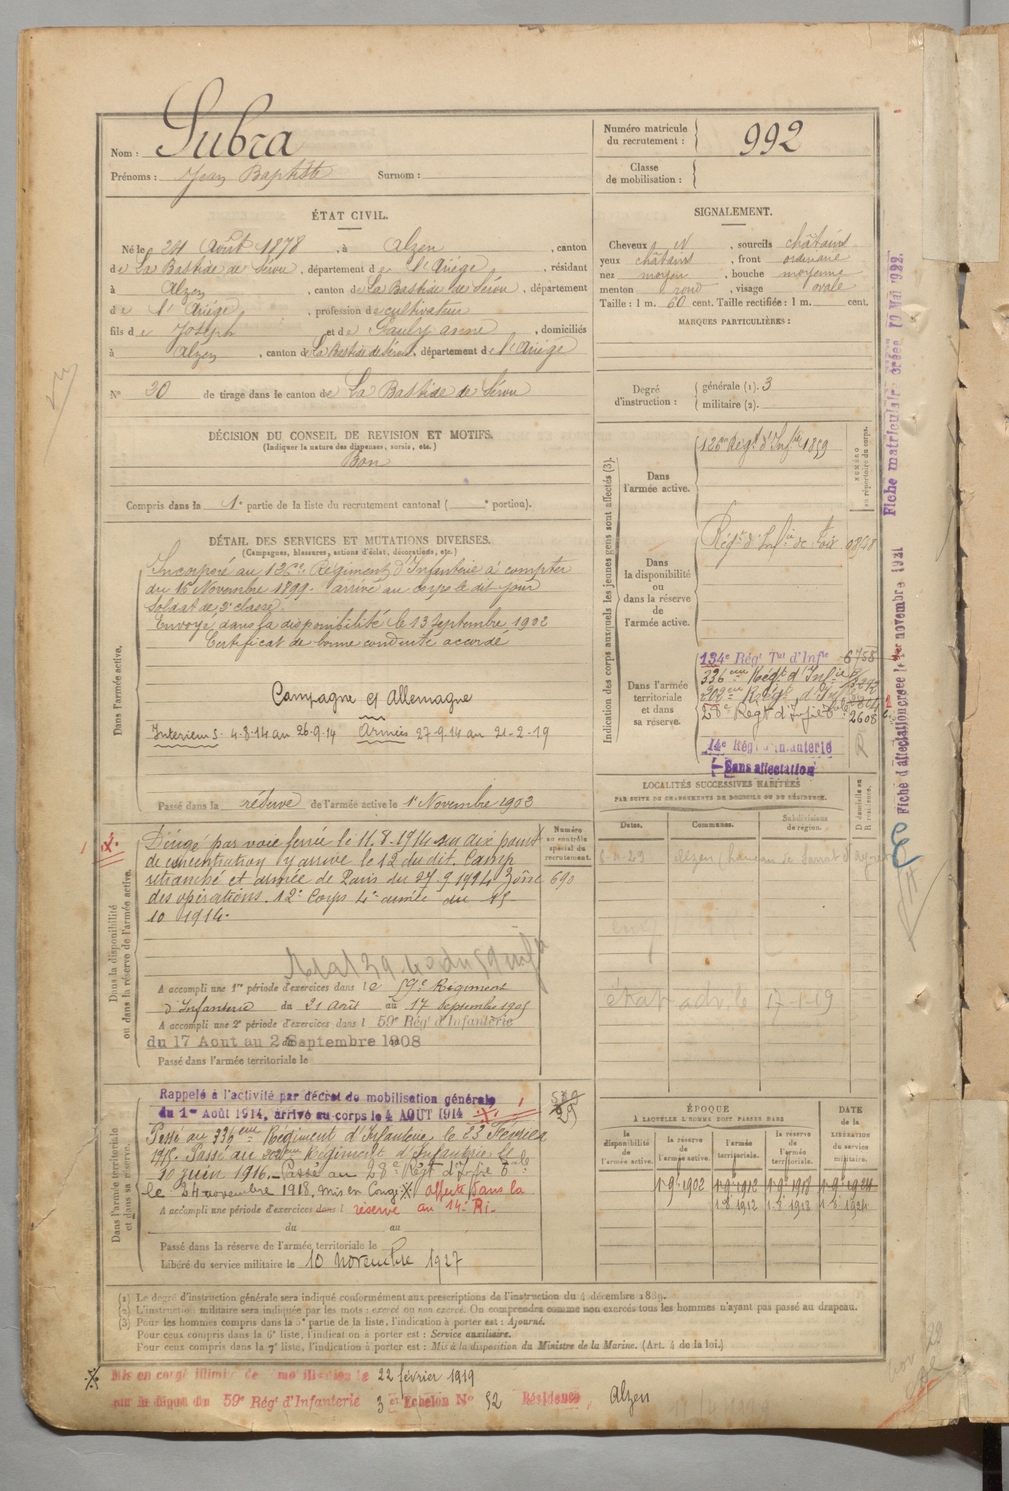 Nom : Subra
Prénoms : Jean Baptiste Surnom :
Numéro matricule du recrutement : 992
Classe de mobilisation :
ÉTAT CIVIL.
Né le 24 Août 1878, à Alzen, canton
de La Bastide de Sérou, département de l'Ariège, résidant
à Alzen, canton de La Bastide de Sérou, département
de l'Ariège, profession de cultivateur
fils de Joseph et de Gauly anne, domiciliés
à Alzen, canton de La Bastide de Sérou, département de l'Ariège
N° 30 de tirage dans le canton de La Bastide de Sérou
SIGNALEMENT.
Cheveux et N, sourcils châtains
yeux châtains, front ordinaire
nez moyen, bouche moyenne
menton rond, visage ovale
Taille : 1 m. 60 cent. Taille rectifiée : 1 m. cent.
MARQUES PARTICULIÈRES :
Degré d'instruction : générale (1). 3
militaire (2).
DÉCISION DU CONSEIL DE REVISION ET MOTIFS.
(Indiquer la nature des dispenses, sursis, etc.)
Bon
Compris dans la 1e partie de la liste du recrutement cantonal ( e portion).
DÉTAIL DES SERVICES ET MUTATIONS DIVERSES.
(Campagnes, blessures, actions d'éclat, décorations, etc.)
Dans l'armée active.
Incorporé au 126e Régiment d'Infanterie à compter
du 16 Novembre 1899. arrivé au corps le dit jour
soldat de 2e classe.
Envoyé dans la disponibilité le 13 Septembre 1902
Certificat de bonne conduite accordé
Campagne et Allemagne
Interieur S. 4-8-14 au 26-9-14 Armées 27-9-14 au 21-2-19
Passé dans la réserve de l'armée active le 1er Novembre 1902
Dans la disponibilité ou dans la réserve de l'armée active.
Dirigé par voie ferrée le 11.8.1914 sur aix point
de concentration y arrive le 12 du dit. Camp
retranché et armée de Paris du 27-9-1914 Zône
des opérations. 12e Corps 4e armée du 15
10 1914.
Numéro au contrôle spécial du recrutement.
690
A accompli une 1re période d'exercices dans le 59e Régiment
d'Infanterie du 21 août au 17 Septembre 1905
A accompli une 2e période d'exercices dans l 59e Rég' d'Infanterie
du 17 Aout au Septembre 1908
Passé dans l'armée territoriale le
Dans l'armée territoriale et dans sa réserve.
Rappelé à l'activité par décret de mobilisation générale
du 1er Août 1914, arrivé au corps le 4 AOUT 1914
Passé au 336eme Régiment d'Infanterie le 23 Février
1915. Passé au 202eme Régiment d'Infanterie le
30 juin 1916. Passé au 28e Régt d'Infie
le 24 novembre 1918, mis en Congé affecté dans la
A accompli une période d'exercices dans l réserve au 14e RI.
du au
Passé dans la réserve de l'armée territoriale le
Libéré du service militaire le 10 novembre 1927
Indication des corps auxquels les jeunes gens sont affectés (3).
NUMÉRO au répertoire du corps.
Dans l'armée active.
126me Régt d'Infrie 1899
Dans la disponibilité ou dans la réserve de l'armée active.
Régt d'Infie de Foix
Dans l'armée territoriale et dans sa réserve.
134e Rég' Tal d'Infie 6758
336eme Régt d'Infie
202eme Régt d'Inf
28e Regt d'Infie 2608
14e Rég' d'Infanterie
Sans affectation
LOCALITÉS SUCCESSIVES HABITÉES
PAR SUITE DE CHANGEMENTS DE DOMICILE OU DE RÉSIDENCE.
Dates. Communes. Subdivisions de région. D domicile ou R résidence.
Alzen
17-1-19
ÉPOQUE
À LAQUELLE L'HOMME DOIT PASSER DANS
DATE de la LIBÉRATION du service militaire.
la disponibilité de l'armée active. la réserve de l'armée active. l'armée territoriale. la réserve de l'armée territoriale.
1-9-1902 1-9-1912 1-9-1918 1-9-1924
1-8-1912 1-8-1918 1-8-1924
Fiche d'affectation créée le 1er novembre 1921
Fiche matriculaire créée 10 Mai 1922.
(1) Le degré d'instruction générale sera indiqué conformément aux prescriptions de l'instruction du 4 décembre 1889.
(2) L'instruction militaire sera indiquée par les mots : exercé ou non exercé. On comprendra comme non exercés tous les hommes n'ayant pas passé au drapeau.
(3) Pour les hommes compris dans la 5e partie de la liste, l'indication à porter est : Ajourné.
Pour ceux compris dans la 6e liste, l'indication à porter est : Service auxiliaire.
Pour ceux compris dans la 7e liste, l'indication à porter est : Mis à la disposition du Ministre de la Marine. (Art. 4 de la loi.)
Mis en congé illimité de démobilisation le 22 février 1919
59e Rég' d'Infanterie 3 e Echelon N° 52 Résidence, Alzen